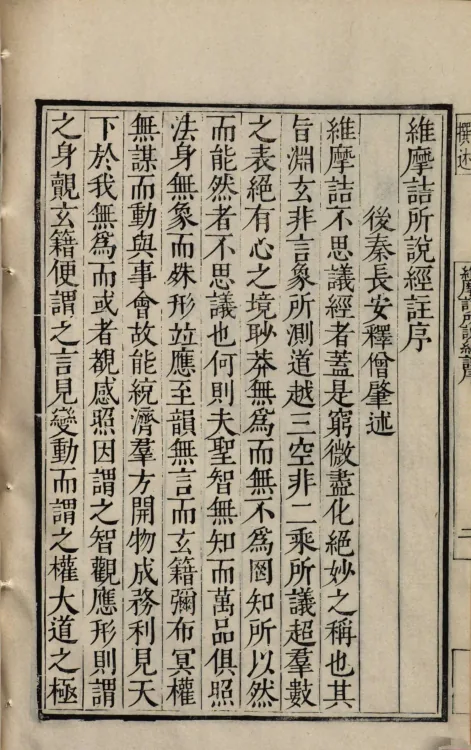 撰述
維摩詰所說經註序
維摩詰所說經註序
後秦長安釋僧肇述
維摩詰不思議經者蓋是窮微盡化絕妙之稱也其
旨淵玄非言象所測道越三空非二乘所議超羣數
之表絕有心之境眇莽無爲而無不爲罔知所以然
而能然者不思議也何則夫聖智無知而萬品俱照
法身無象而殊形竝應至韻無言而玄籍彌布冥權
無謀而動與事會故能統濟羣方開物成務利見天
下於我無爲而或者覩感照因謂之智觀應形則謂
之身覿玄籍便謂之言見變動而謂之權大道之極